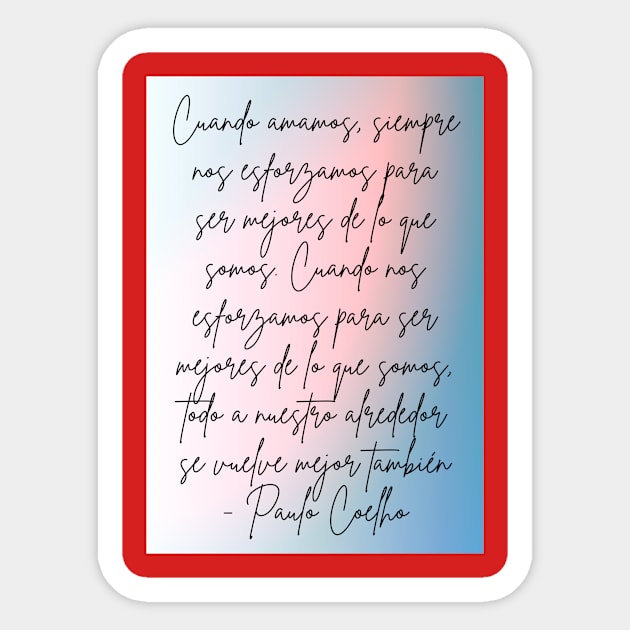 Cuando amamos, siempre
nos esforzamos para
ser mejores de lo que
somos. Cuando nos
esforzamos para ser
mejores de lo que somos,
todo a nuestro alrededor
se vuelve mejor también
- Paulo Coelho